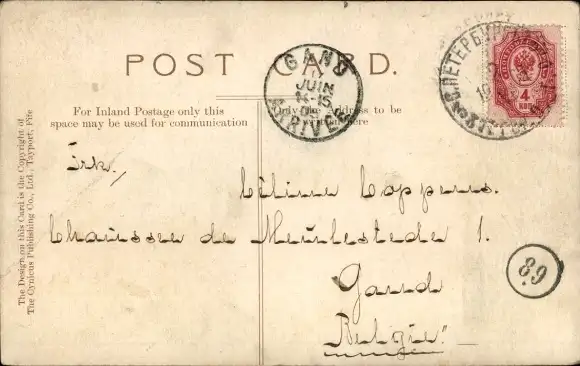 POST CARD.
GAND
JUIN
14-15
ARRIVÉE
С.ПЕТЕРБУРГ
4
КОП
For Inland Postage only this
space may be used for communication
Only the Address to be
written here
The Design on this Card is the Copyright of
The Cynicus Publishing Co., Ltd., Tayport, Fife
Céline Coppens.
Chaussée de Meulestede 1.
Gand
Belgie."
89